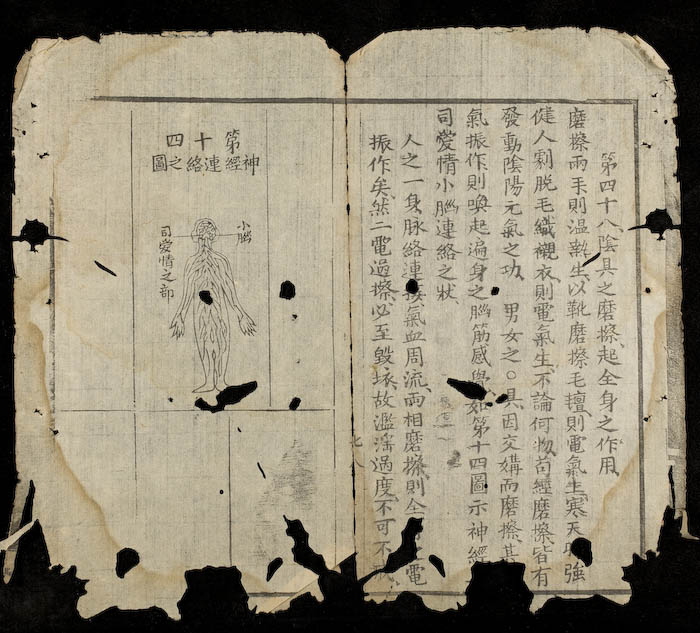 第四十八、陰具之磨擦、起全身之作用、
磨擦兩手則温熱生、以靴磨擦毛氊、則電氣生、寒天 強
健人、剝脱毛織襯衣則電氣生、不論何物、苟經磨擦、皆有
發動陰陽元氣之功、男女之〇具、因交媾而磨擦、其
氣振作、則喚起遍身之腦筋感覺、如第十四圖示神經
司愛情小腦連絡之狀、
人之一身、脉絡連接、氣血周流、兩相磨擦、則全 電
振作矣、然二電過擦、必至毀壞、故濫淫過度、不可不
七八
第十四
神經連絡之圖
小腦
司愛情之部